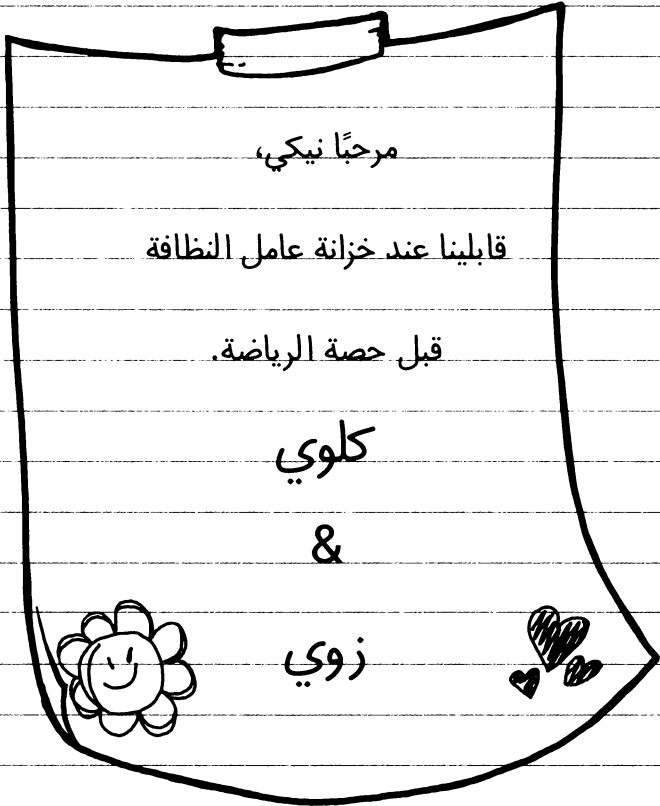 مرحبًا نيكي،
قابلينا عند خزانة عامل النظافة
قبل حصة الرياضة.
كلوي
&
زوي